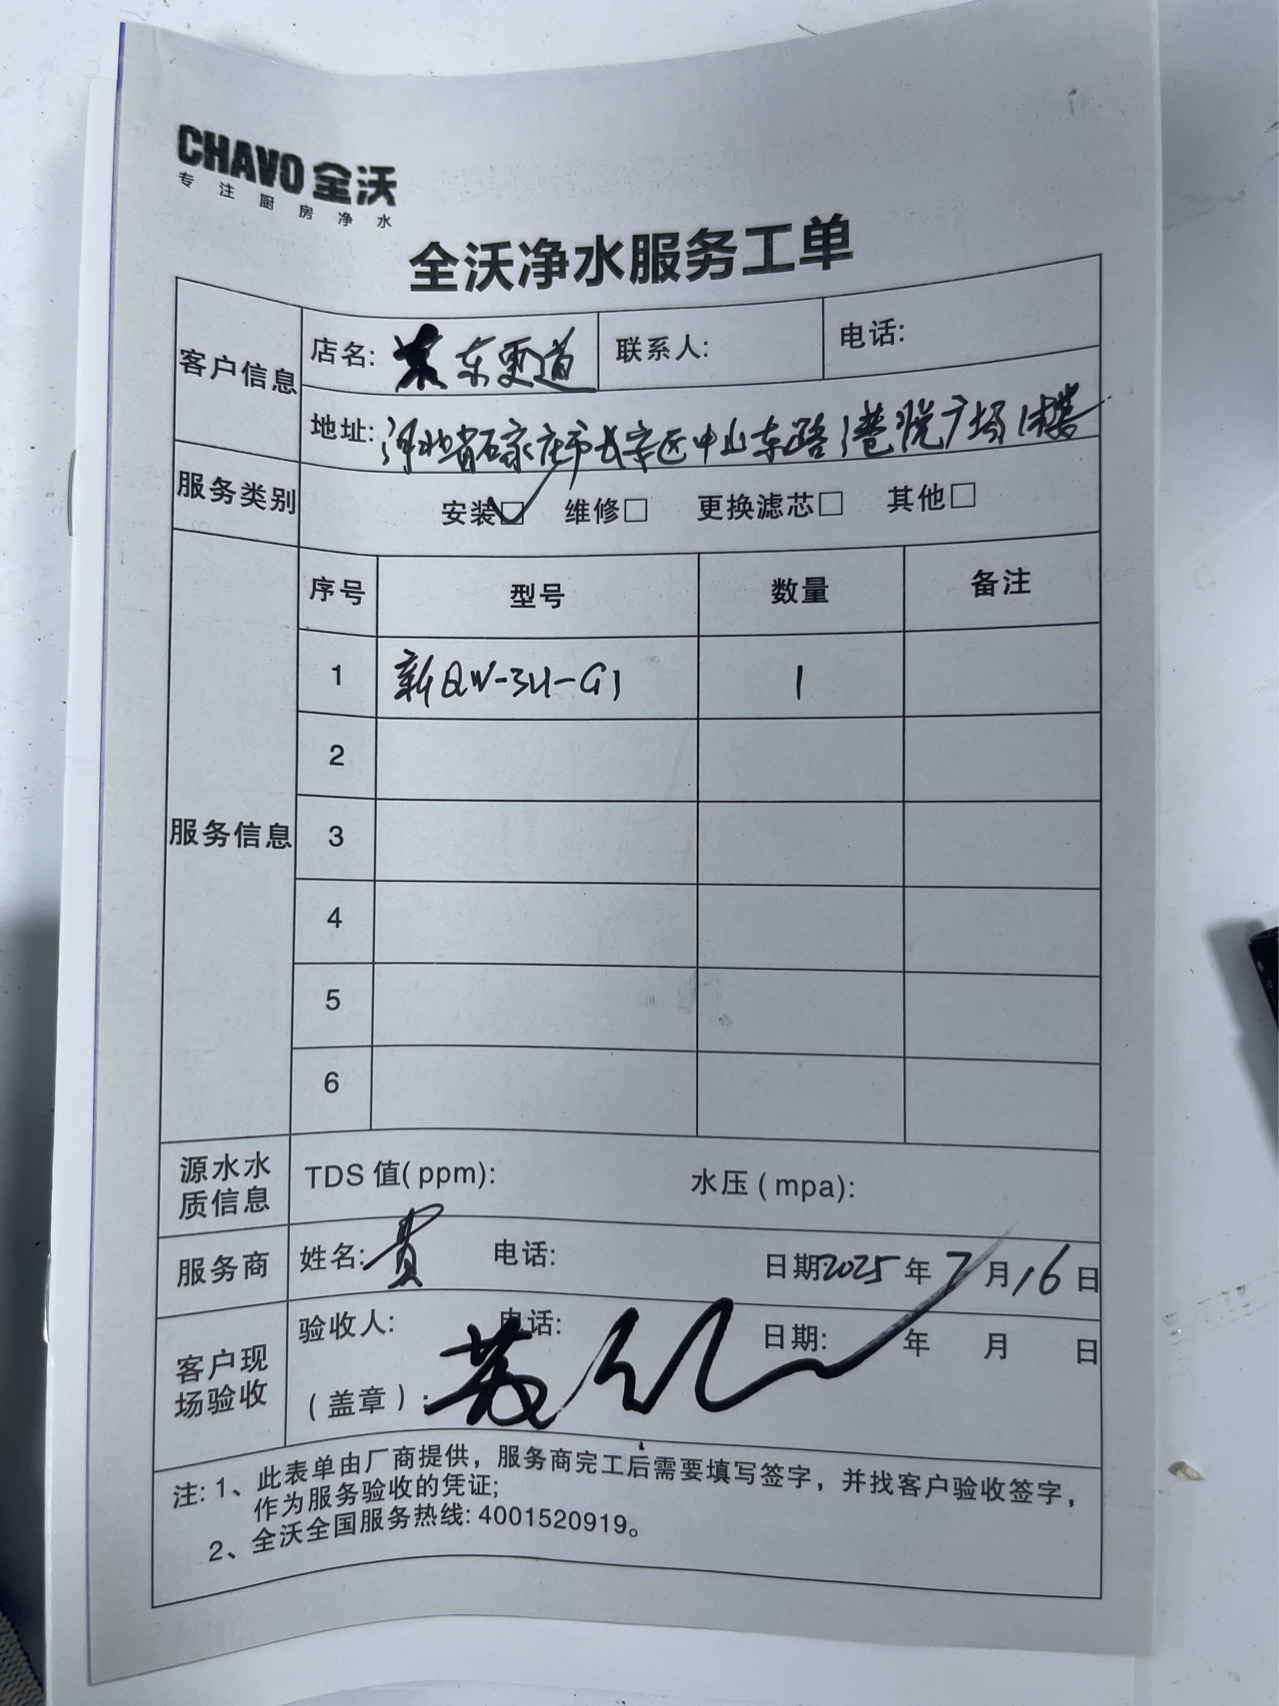 CHAVO 全沃
专注厨房净水
全沃净水服务工单
客户信息
店名: 东更道 联系人: 电话:
地址: 河北省石家庄市长安区中山东路港悦广场1楼
服务类别 安装☑ 维修□ 更换滤芯□ 其他□
服务信息
序号 型号 数量 备注
1 新QW-3U-G1 1
2
3
4
5
6
源水水质信息 TDS 值(ppm): 水压(mpa):
服务商 姓名: 贵 电话: 日期2025年7月16日
客户现场验收 验收人: 电话: 日期: 年 月 日
(盖章):
注: 1、此表单由厂商提供，服务商完工后需要填写签字，并找客户验收签字，
作为服务验收的凭证;
2、全沃全国服务热线: 4001520919。